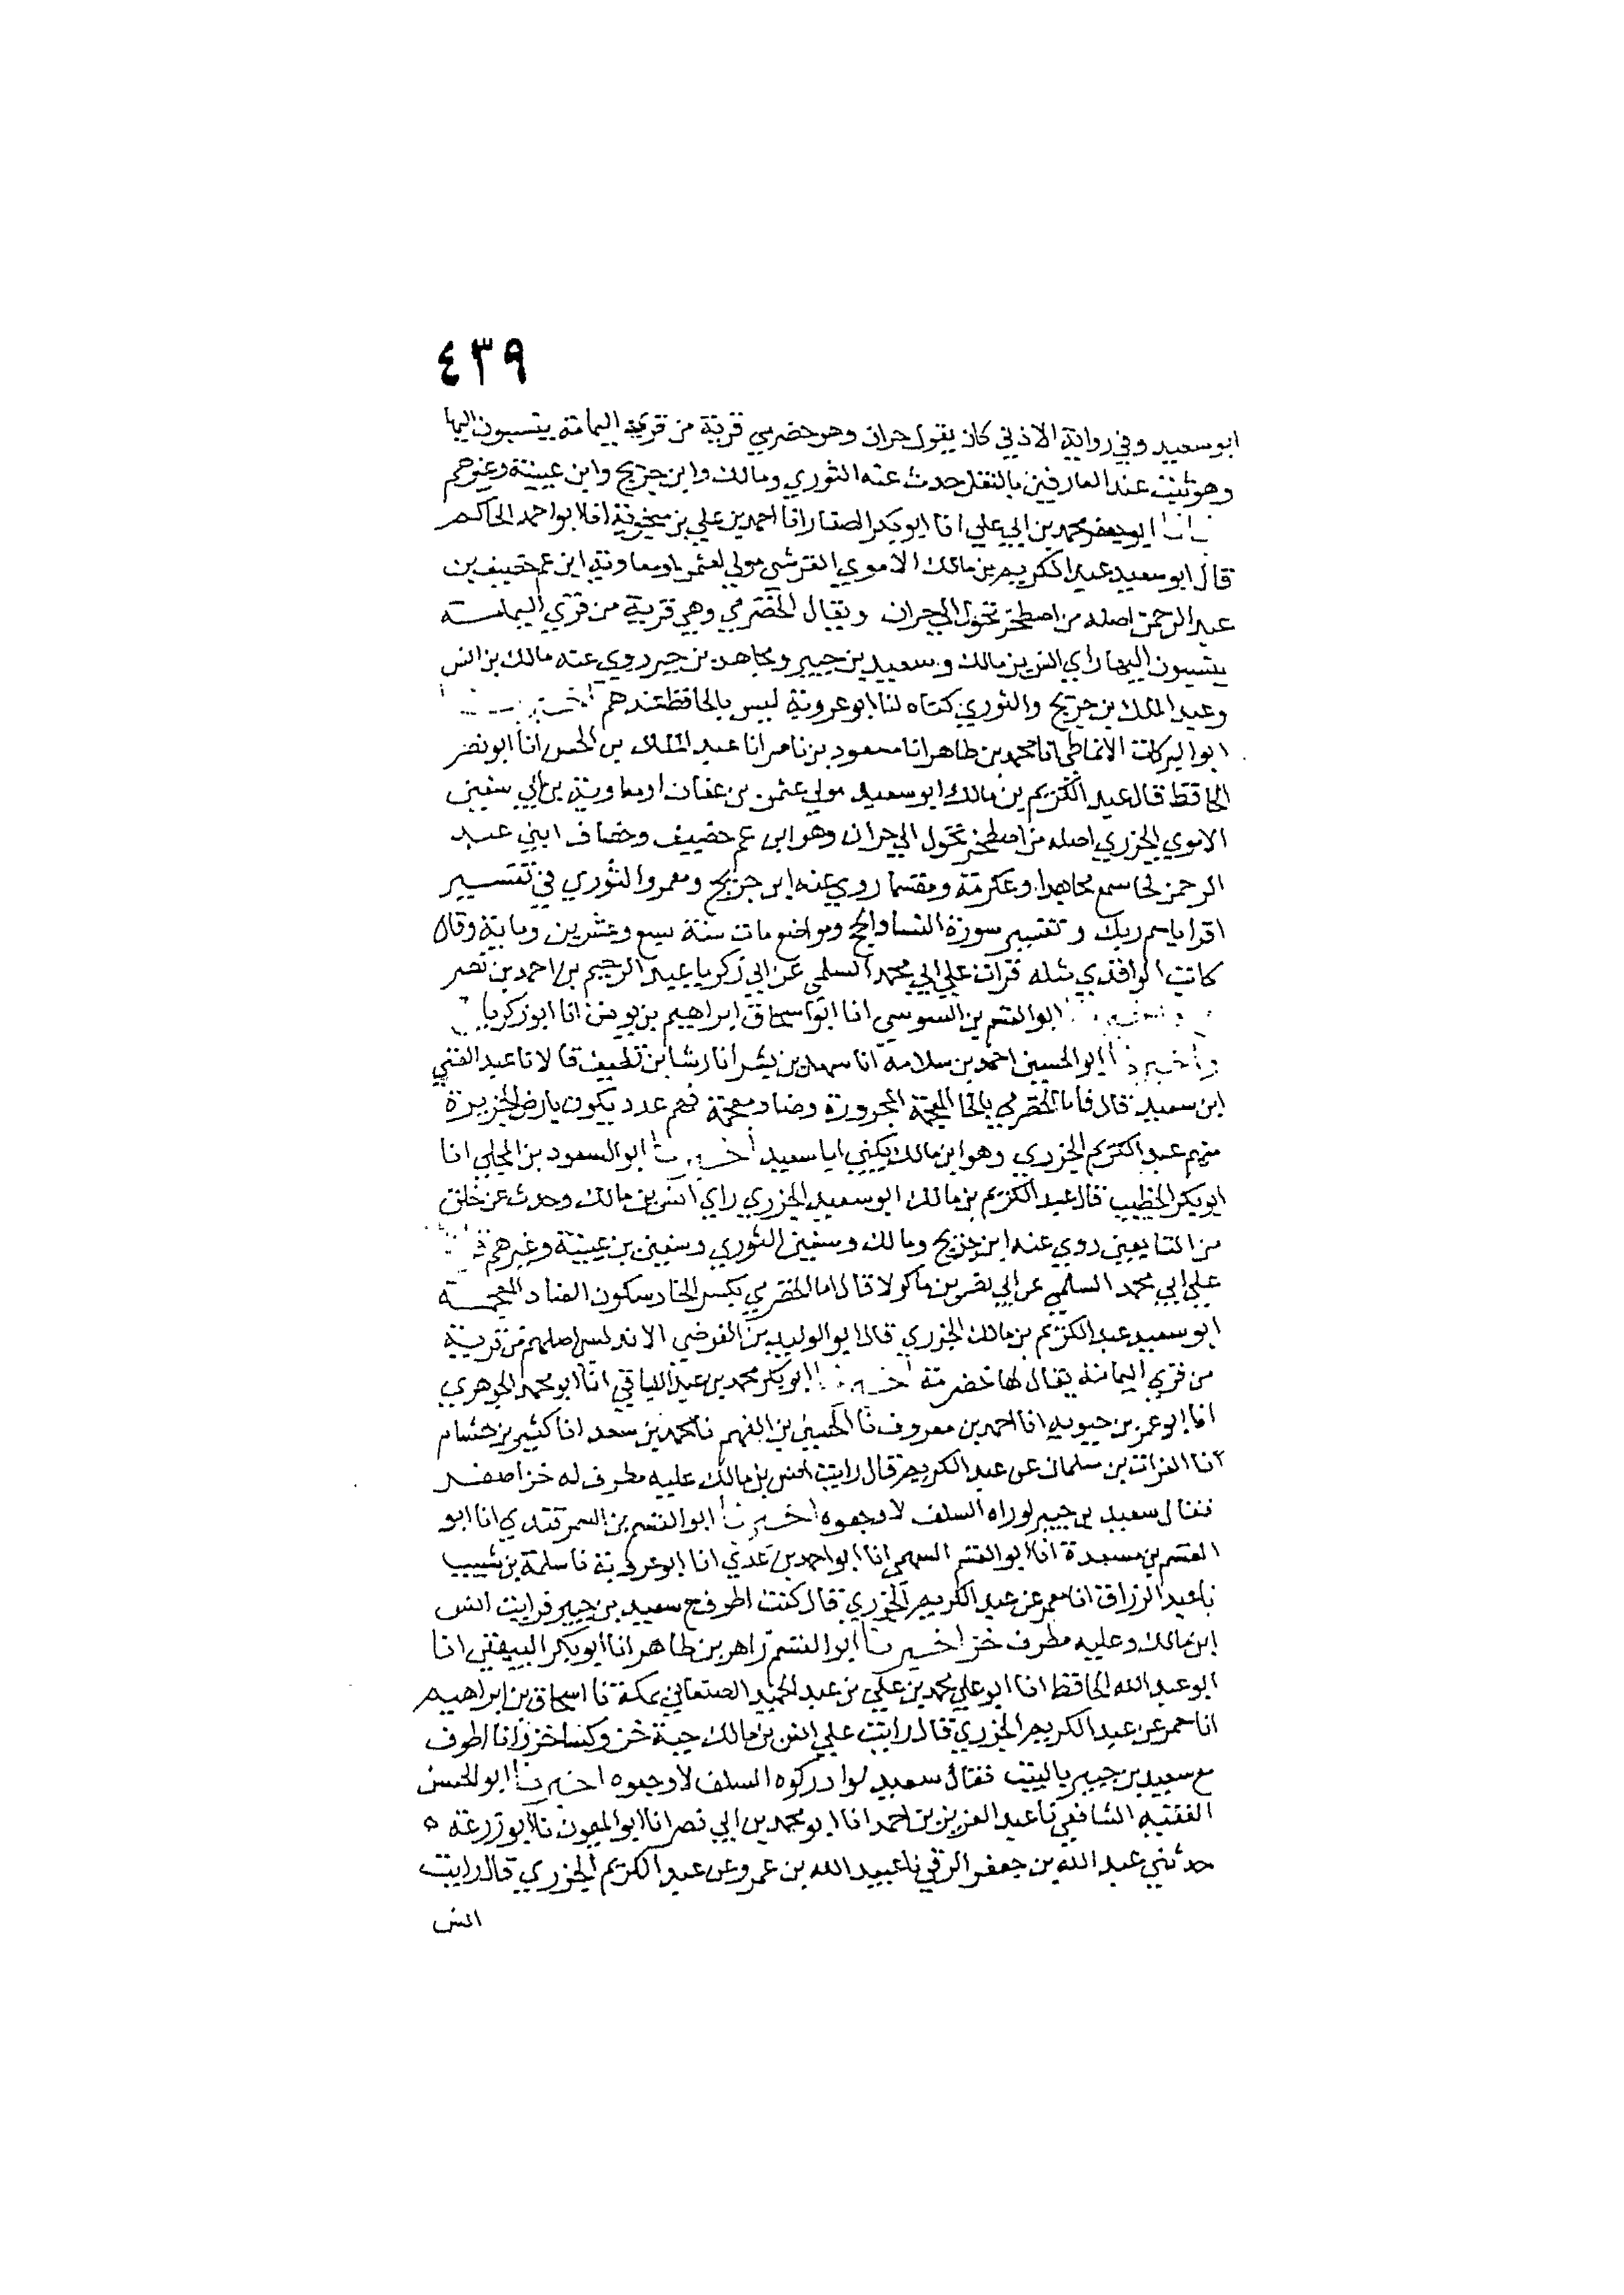 ٤٣٩
ابو سعيد وفي رواية الاذني كان يقول حران وهو خضرمي قرية من قرية اليمامة ينتسبون اليها
وهو ثبت عند العارفين بالنقل حدث عنه الثوري ومالك وابن جريج وابن عيينة وغيرهم
ابو جعفر محمد بن ابي علي انا ابو بكر الصفار انا احمد بن علي بن منجويه انا ابو احمد الحاكم
قال ابو سعيد عبد الكريم بن مالك الاموي القرشي مولي لعثمن او معاوية ابن عم خصيف بن
عبد الرحمن اصله من اصطخر تحول الي حران ويقال الخضرمي وهي قرية من قري اليمامه
ينتسبون اليها راي انس بن مالك وسعيد بن جبير ومجاهد بن جبر روي عنه مالك بن انس
وعبد الملك بن جريج والثوري كناه لنا ابو عروبة ليس بالحافظ عندهم اخبرنا
ابو البركات الانماطي انا محمد بن طاهر انا مسعود بن ناصر انا عبد الملك بن الحسن انا ابو نصر
الحافظ قال عبد الكريم بن مالك ابو سعيد مولي عثمن بن عفان او معاوية بن ابي سفين
الاموي الجزري اصله من اصطخر تحول الي حران وهو ابن عم خصيف وخصاف ابني عبد
الرحمن لحا سمع مجاهدا وعكرمة ومقسما روي عنه ابن جريج ومعمر والثوري في تفسير
اقرا باسم ربك وتفسير سورة النسا والحج ومواضع مات سنة سبع وعشرين وماية وقال
كاتب الواقدي مثله قرات علي ابي محمد السلمي عن ابي زكريا عبد الرحيم بن احمد بن نصر
ابو القسم بن السوسي انا ابو اسحاق ابراهيم بن يونس انا ابو زكريا
واخبرنا ابو الحسين احمد بن سلامه انا سهل بن بشر انا رشا بن نظيف قالا نا عبد الغني
ابن سعيد قال فاما الخضرمي بالخا المعجمة المجرورة وضاد معجمة فهم عدد يكون بارض الجزيرة
منهم عبد الكريم الجزري وهو ابن مالك يكني ابا سعيد اخبرنا ابو السعود بن المجلي انا
ابو بكر الخطيب قال عبد الكريم بن مالك ابو سعيد الجزري راي انس بن مالك وحدث عن خلق
من التابعين روي عنه ابن جريج ومالك وسفين الثوري وسفين بن عيينة وغيرهم
علي ابي محمد السلمي عن ابي نصر بن ماكولا قال اما الخضرمي بكسر الخا وسكون الضاد المعجمه
ابو سعيد عبد الكريم بن مالك الجزري قال ابو الوليد بن الفرضي الاندلسي اصلهم من قرية
من قري اليمامة يقال لها خضرمة اخبرنا ابو بكر محمد بن عبد الباقي انا ابو محمد الجوهري
انا ابو عمر بن حيويه انا احمد بن معروف نا الحسين بن الفهم نا محمد بن سعد انا كثير بن هشام
انا الفرات بن سلمان عن عبد الكريم قال رايت انس بن مالك عليه مطرف له خز اصفر
فقال سعيد بن جبير لو راه السلف لاوجعوه اخبرنا ابو القسم بن السمرقندي انا ابو
القسم بن مسعدة انا ابو القسم السهمي انا ابو احمد بن عدي انا ابو عروبة نا سلمة بن شبيب
نا عبد الرزاق انا معمر عن عبد الكريم الجزري قال كنت اطوف مع سعيد بن جبير فرايت انس
ابن مالك وعليه مطرف خز اخبرنا ابو القسم زاهر بن طاهر انا ابو بكر البيهقي انا
ابو عبد الله الحافظ انا ابو علي محمد بن علي بن عبد الحميد الصنعاني بمكة نا اسحاق بن ابراهيم
انا معمر عن عبد الكريم الجزري قال رايت علي انس بن مالك جبة خز وكسا خز وانا اطوف
مع سعيد بن جبير بالبيت فقال سعيد لو ادركوه السلف لاوجعوه اخبرنا ابو الحسن
الفقيه الشافعي نا عبد العزيز بن احمد انا ابو محمد بن ابي نصر انا ابو الميمون نا ابو زرعة ه
حدثني عبد الله بن جعفر الرقي نا عبيد الله بن عمرو عن عبد الكريم الجزري قال رايت
انس